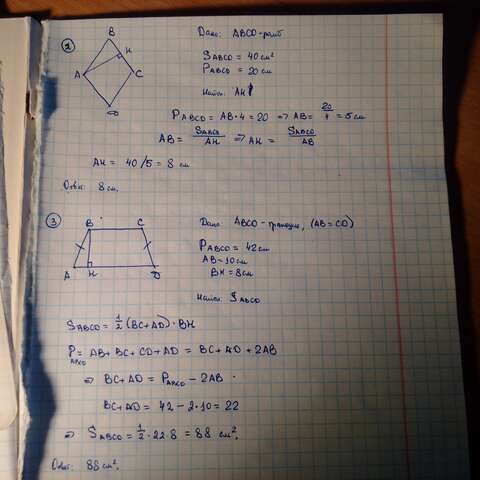 2
B
H
A
C
D
Дано: ABCD - ромб
S ABCD = 40 см²
P ABCD = 20 см
Найти: AH
P ABCD = AB · 4 = 20 ⇒ AB = 20/4 = 5 см
AB = S ABCD / AH ⇒ AH = S ABCD / AB
AH = 40/5 = 8 см
Ответ: 8 см.
3
B
C
A
H
D
Дано: ABCD - трапеция, (AB = CD)
P ABCD = 42 см
AB = 10 см
BH = 8 см
Найти: S ABCD
S ABCD = 1/2 (BC + AD) · BH
P ABCD = AB + BC + CD + AD = BC + AD + 2AB
⇒ BC + AD = P ABCD - 2AB
BC + AD = 42 - 2 · 10 = 22
⇒ S ABCD = 1/2 · 22 · 8 = 88 см².
Ответ: 88 см².